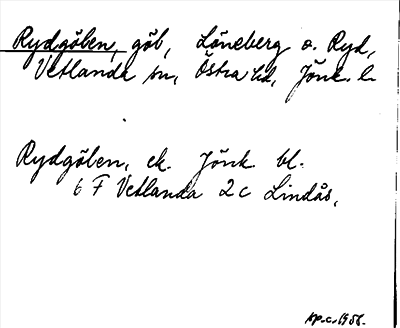 Rydgölen, göl, Löneberg o. Ryd,
Vetlanda sn, Östra hd, Jönk. l.
Rydgölen, ek. Jönk bl.
6 F Vetlanda 2 c Lindås,